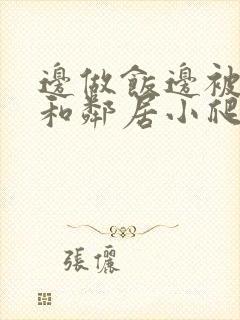 邊做飯邊被
和鄰居小爬
張儷